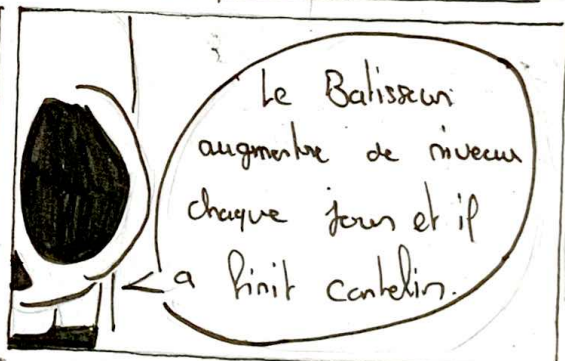 Le Batisseur
augmentre de niveau
chaque jour et il
a finit cantelin.